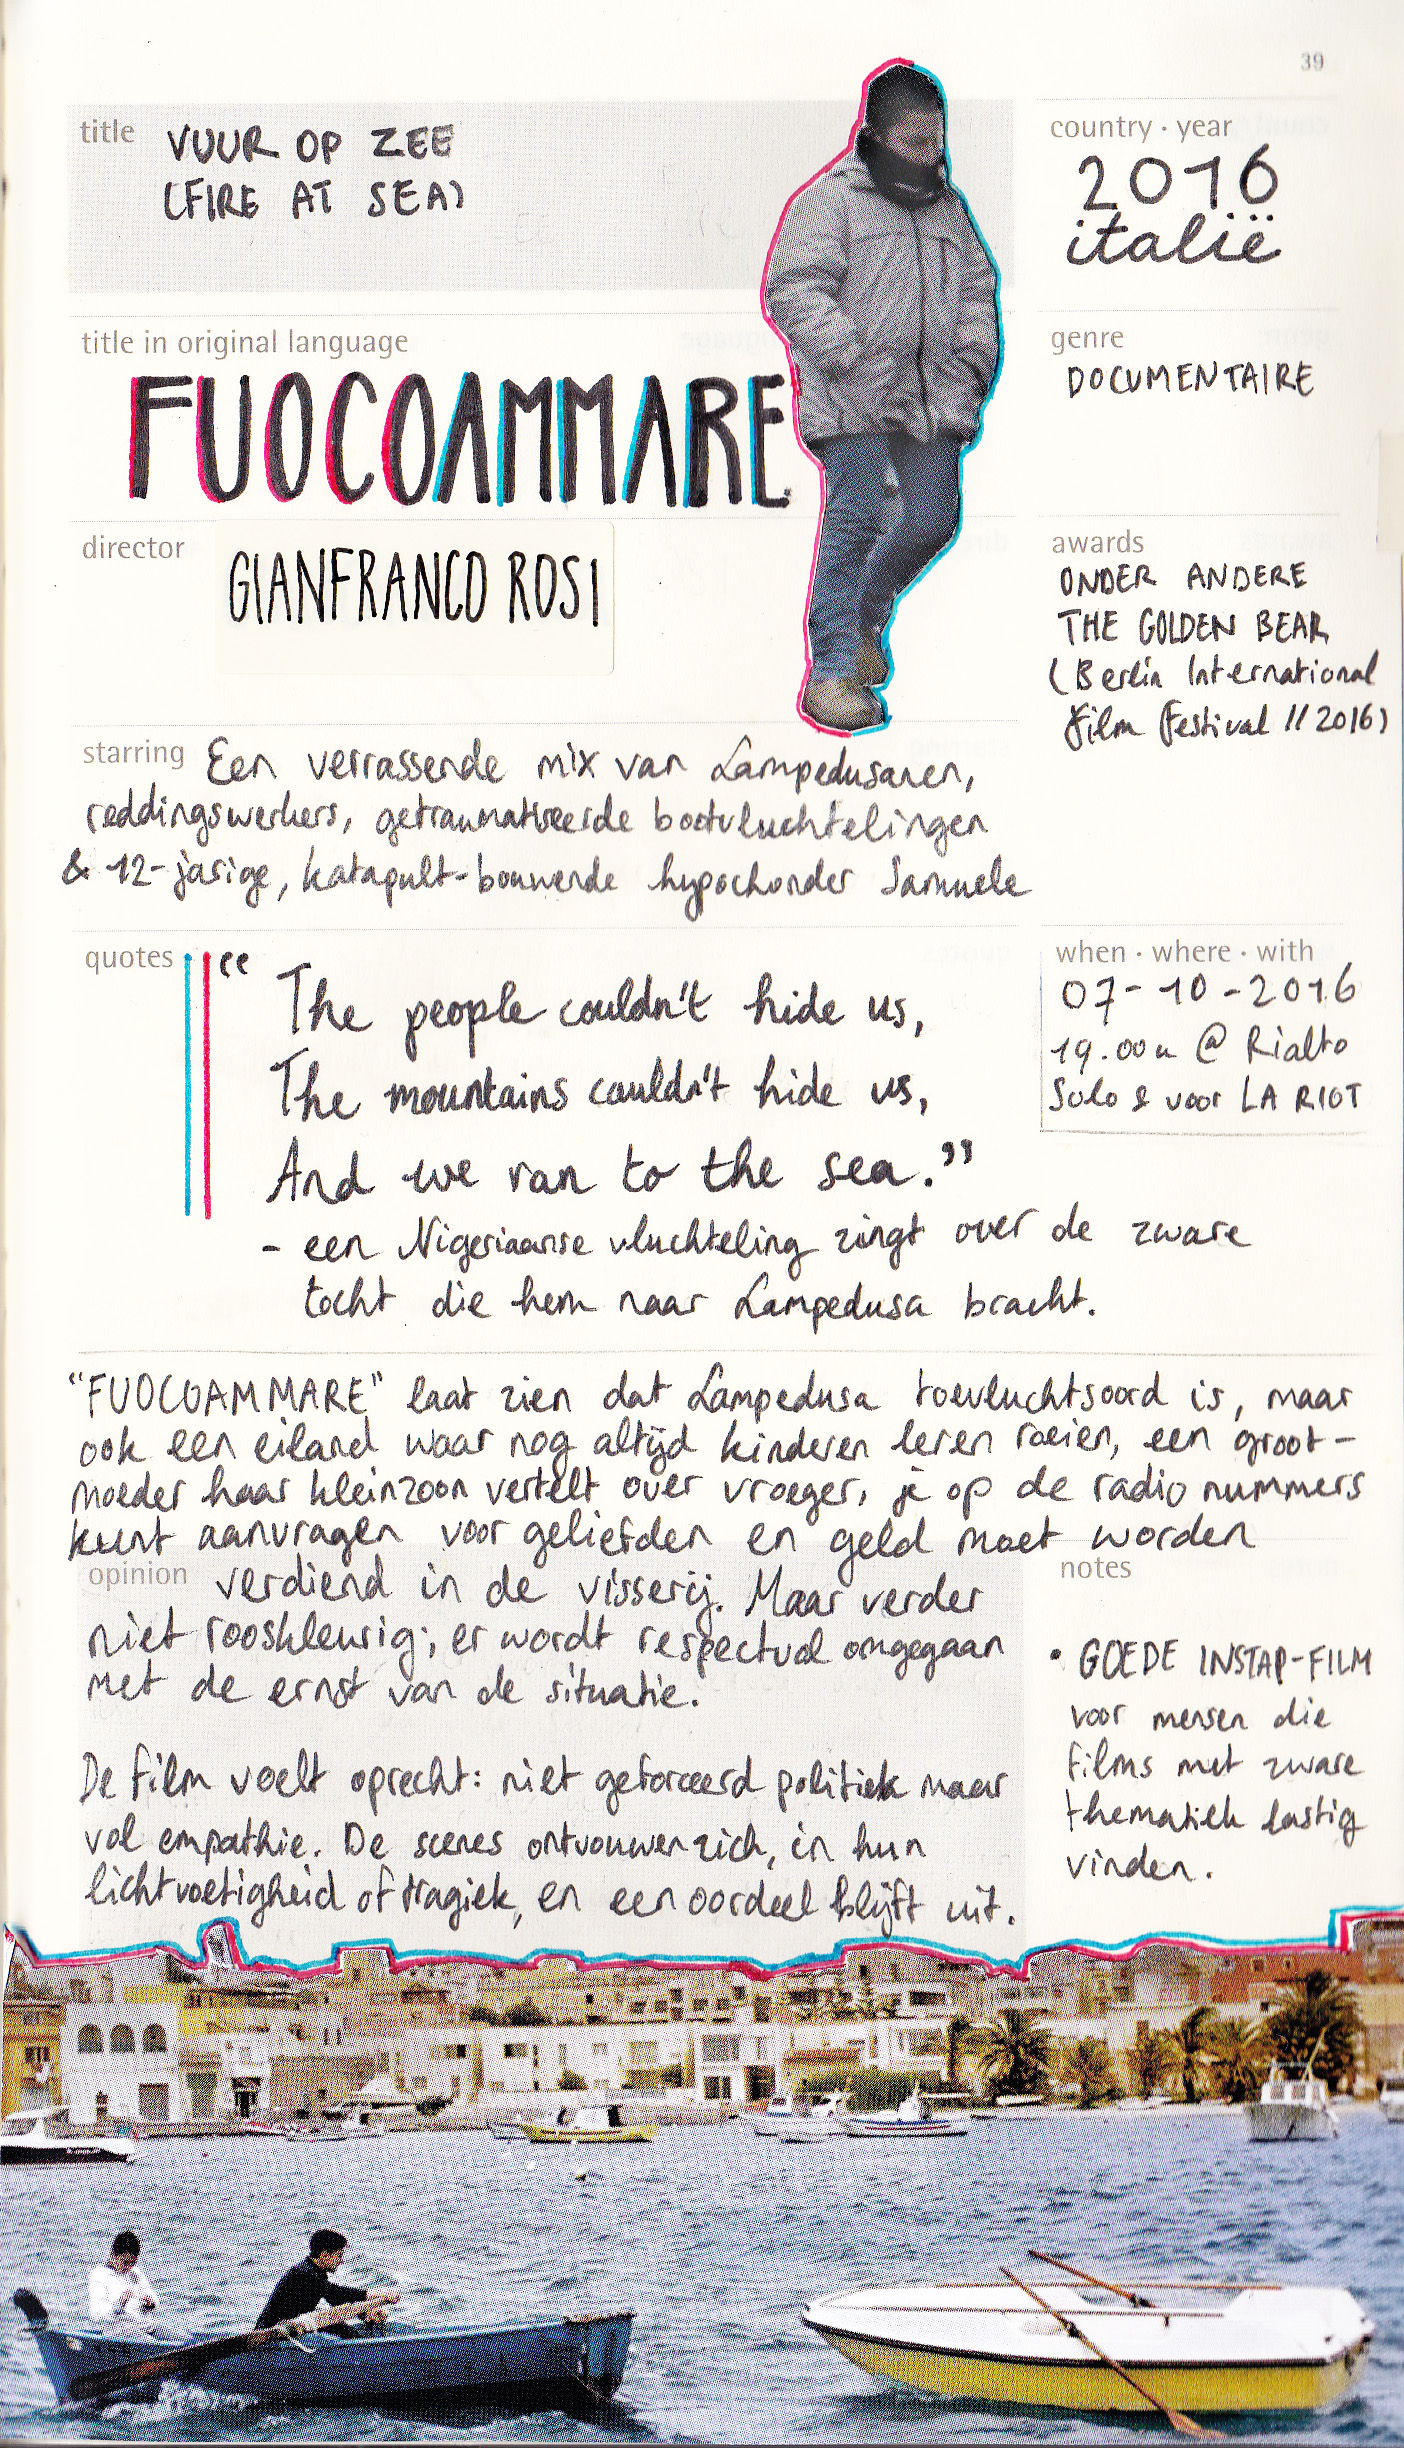 39
title VUUR OP ZEE
(FIRE AT SEA)
country · year
2016
italië
title in original language
FUOCOAMMARE
genre
DOCUMENTAIRE
director GIANFRANCO ROSI
awards
ONDER ANDERE
THE GOLDEN BEAR
(Berlin International
Film Festival // 2016)
starring Een verrassende mix van Lampedusanen,
reddingswerkers, getraumatiseerde bootvluchtelingen
& 12-jarige, katapult-bouwende hypochonder Samuele
quotes
“The people couldn't hide us,
The mountains couldn't hide us,
And we ran to the sea.”
- een Nigeriaanse vluchteling zingt over de zware
tocht die hem naar Lampedusa bracht.
when · where · with
07-10-2016
19.00u @ Rialto
Solo & voor LA RIOT
“FUOCOAMMARE” laat zien dat Lampedusa toevluchtsoord is, maar
ook een eiland waar nog altijd kinderen leren roeien, een groot-
moeder haar kleinzoon vertelt over vroeger, je op de radio nummers
kunt aanvragen voor geliefden en geld moet worden
opinion verdiend in de visserij. Maar verder
niet rooskleurig; er wordt respectvol omgegaan
met de ernst van de situatie.
De film voelt oprecht: niet geforceerd politiek maar
vol empathie. De scenes ontvouwen zich, in hun
lichtvoetigheid of tragiek, en een oordeel blijft uit.
notes
• GOEDE INSTAP-FILM
voor mensen die
films met zware
thematiek lastig
vinden.